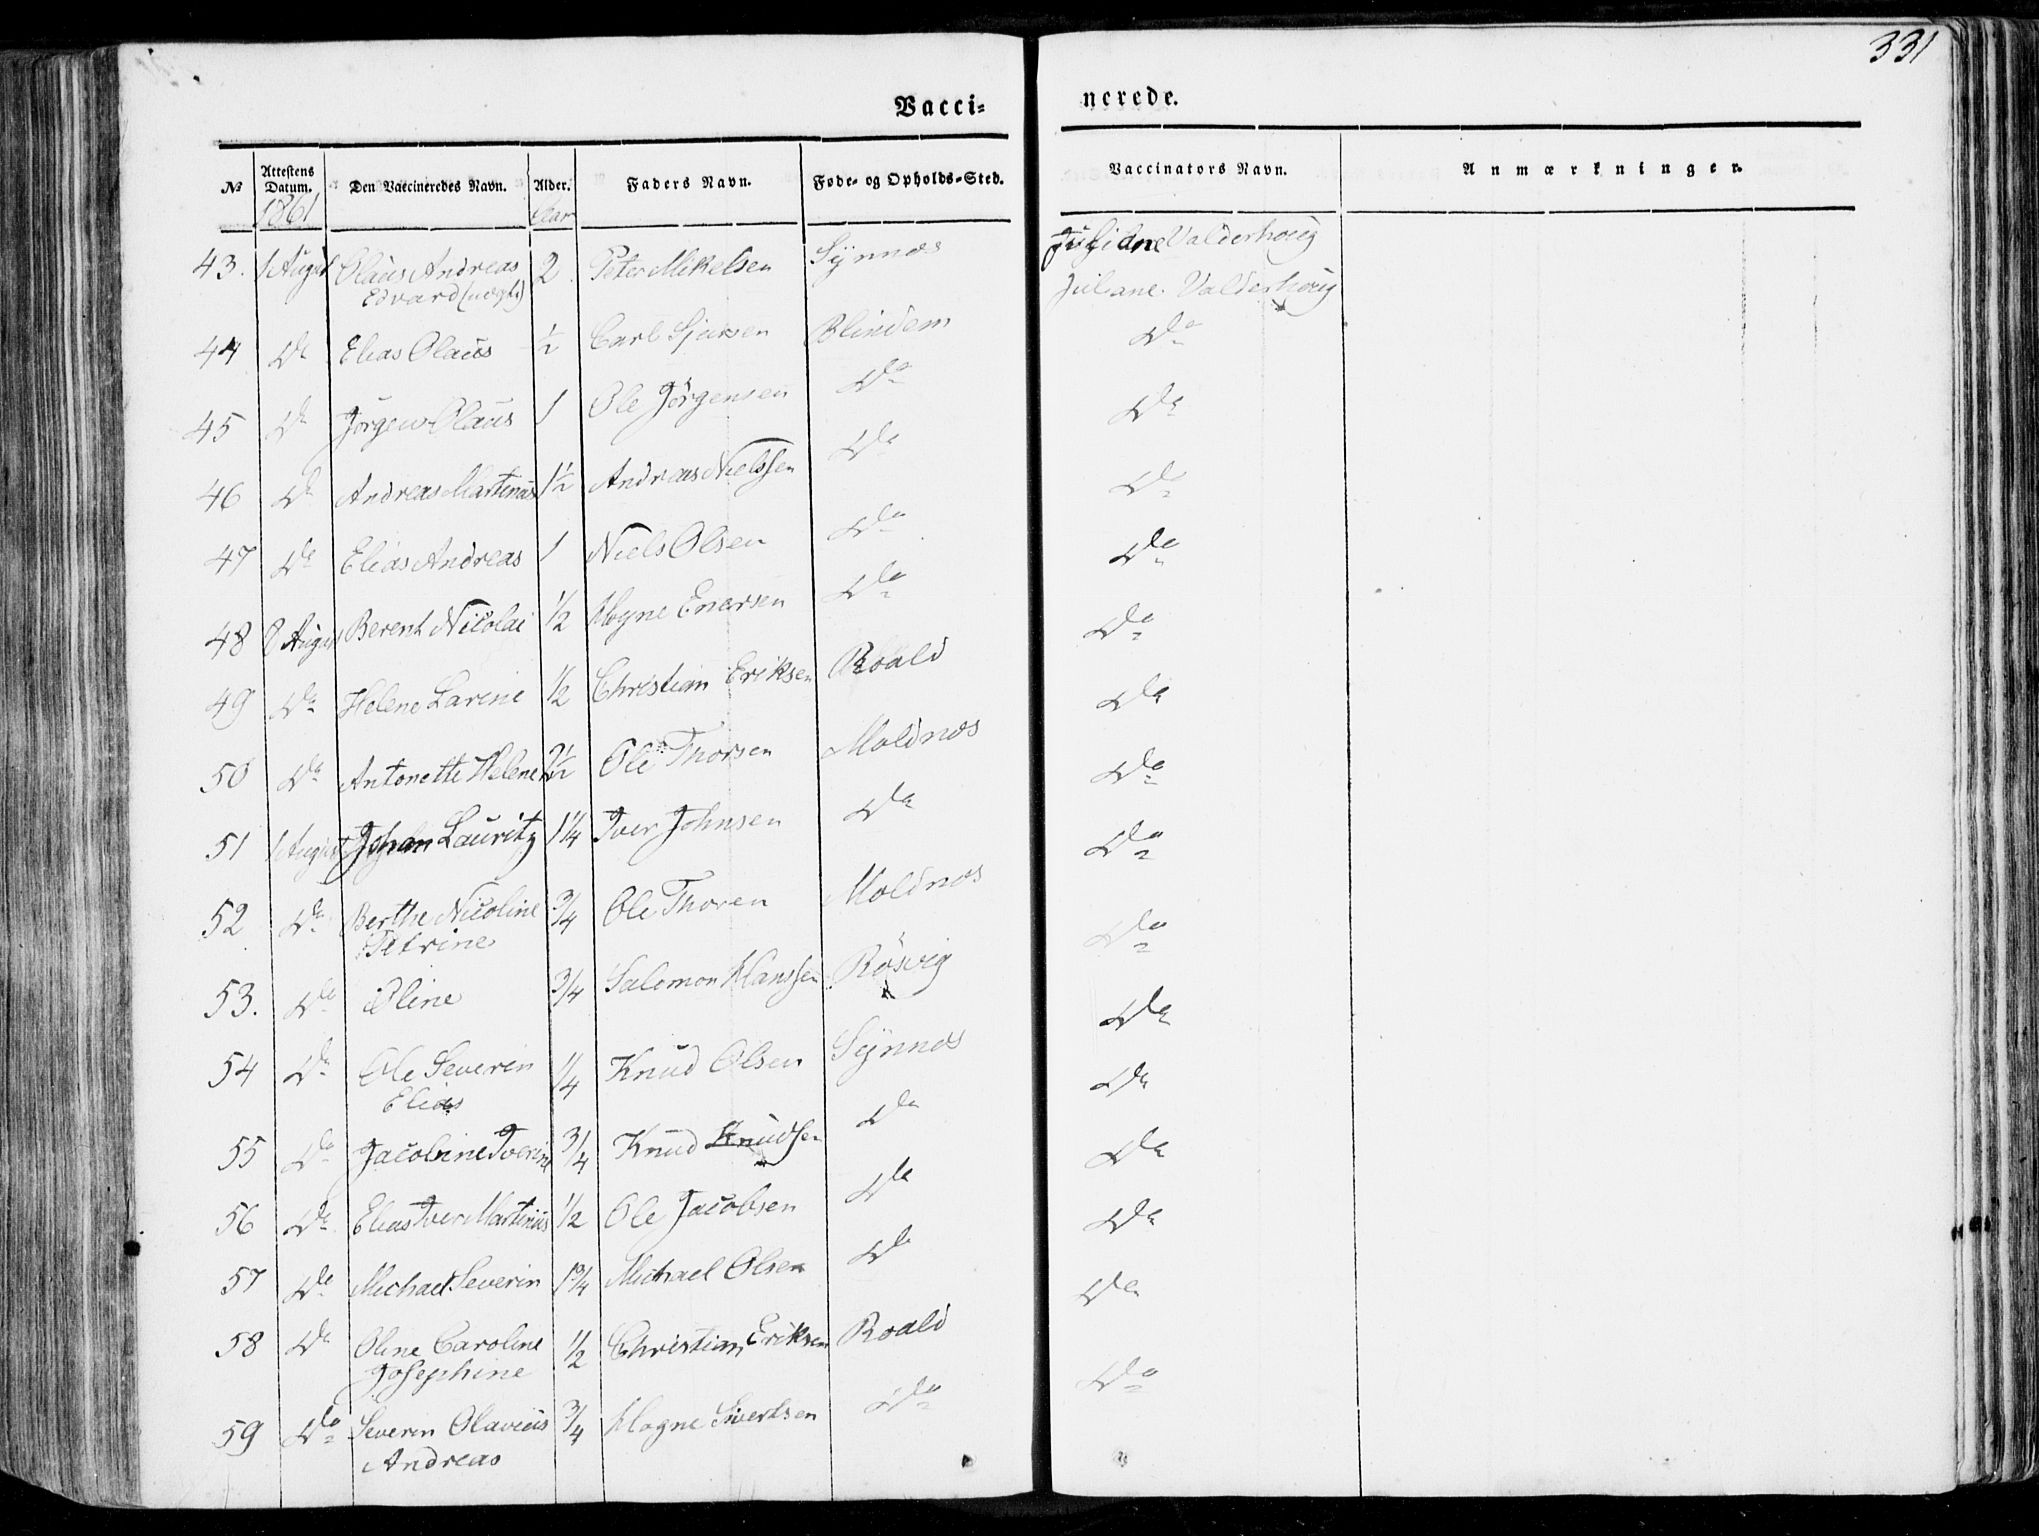 331
Vacci- nerede.
№ Attestens Datum. Den Vaccineredes Navn. Alder. Faders Navn. Føde- og Opholds-Sted. Vaccinators Navn. Anmærkninger.
1861 Aar
Juliane Valderhoug
43. 1 August Olaus Andreas 2 Peter Mikelsen Synnæs Juliane Valderhoug
Edvard
44 Do Elias Olaus ½ Carl Blindem Do
45 Do Jørgen Olaus 1 Ole Jørgensen Do Do
46 Do Andreas Martinus 1½ Andreas Nielssen Do Do
47 Do Elias Andreas 1 Niels Olsen Do Do
48 8 August Berent Nicolai ½ Mogne Enersen Do Do
49 Do Helene Larine ½ Christian Eriksen Roald Do
50 Do Antonette Helene 2½ Ole Thorsen Moldnæs Do
51 1 August Johan Lauritz 1¼ Iver Johnsen Do Do
52 Do Berthe Nicoline ¾ Ole Thoren Moldnæs Do
Petrine
53. Do Oline ¾ Salomon Hanssen Røsvig Do
54 Do Ole Severin ¼ Knud Olsen Synnæs Do
Elias
55 Do Jacobine Iverine ¾ Knud Knudsen Do Do
56 Do Elias Iver Martinus ½ Ole Jacobsen Do Do
57 Do Michael Severin 1¾ Michael Olsen Do Do
58 Do Oline Caroline ½ Christian Eriksen Roald Do
Josephine
59 Do Severin Olavius ¾ Mogne Sivertsen Do
Andreas